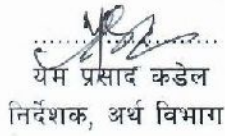 यम प्रसाद कडेल
निर्देशक, अर्थ विभाग